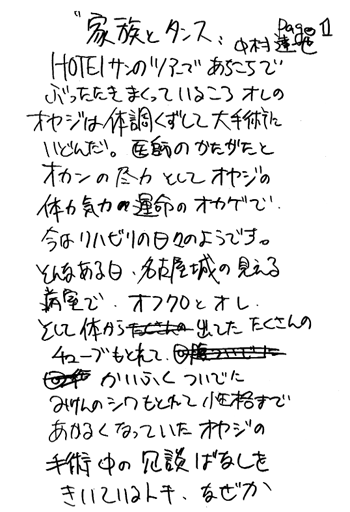 Page 1
"家族とダンス" 中村達也
HOTEIサンのツアーであちこちで
ぶったたきまくっているころ オレの
オヤジは体調くずして大手術に
いどんだ。医師のかたがたと
オカンの尽力 としてオヤジの
体力気力 運命のオカゲで
今はリハビリの日々のようです。
そんなある日、名古屋城の見える
病室で、オフクロとオレ、
そして体から 出てた たくさんの
チューブもとれて、
かいふく ついでに
みけんのシワもとれて 性格まで
あかるくなっていた オヤジの
手術中の冗談ばなしを
きいているトキ、なぜか